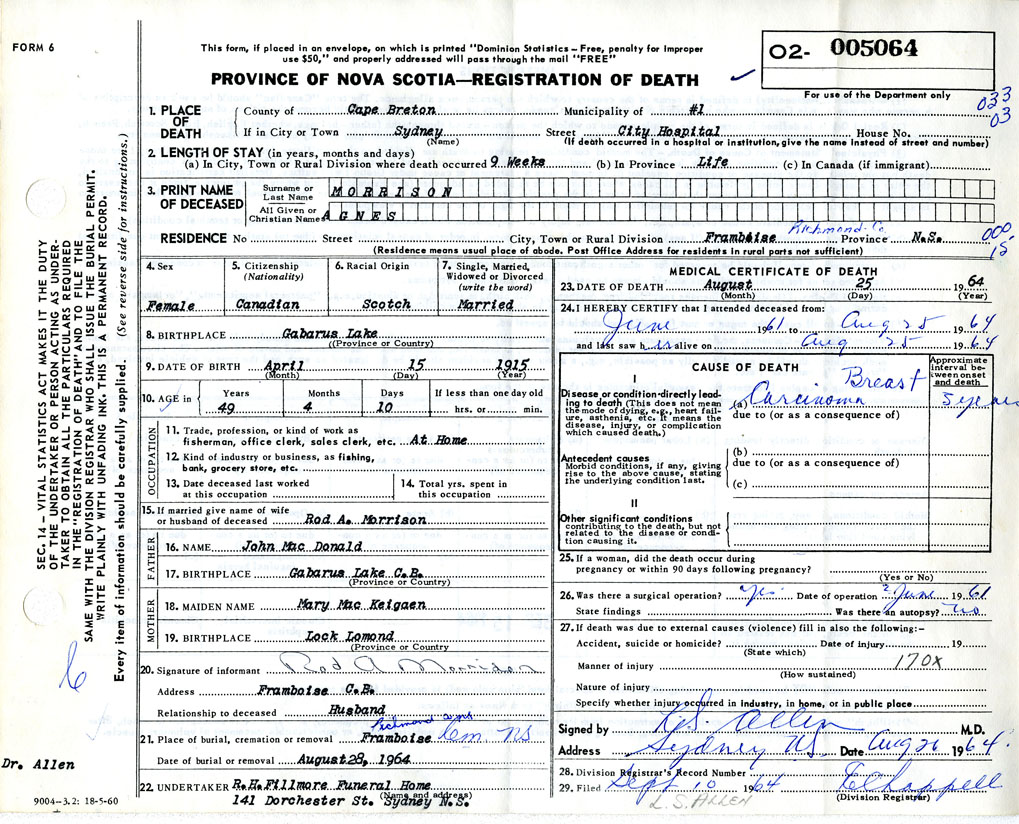 FORM 6
This form, if placed in an envelope, on which is printed "Dominion Statistics – Free, penalty for improper
use $50," and properly addressed will pass through the mail "FREE"
PROVINCE OF NOVA SCOTIA—REGISTRATION OF DEATH
O2- 005064
For use of the Department only
033
03
1. PLACE OF DEATH
County of Cape Breton Municipality of #1
If in City or Town Sydney Street City Hospital House No.
(Name) (If death occurred in a hospital or institution, give the name instead of street and number)
2. LENGTH OF STAY (in years, months and days)
(a) In City, Town or Rural Division where death occurred 9 Weeks (b) In Province Life (c) In Canada (if immigrant)
3. PRINT NAME OF DECEASED
Surname or Last Name MORRISON
All Given or Christian Names AGNES
Richmond Co
RESIDENCE No Street City, Town or Rural Division Framboise Province N.S.
000
15
(Residence means usual place of abode. Post Office Address for residents in rural parts not sufficient)
4. Sex
Female
5. Citizenship
(Nationality)
Canadian
6. Racial Origin
Scotch
7. Single, Married, Widowed or Divorced
(write the word)
Married
8. BIRTHPLACE Gabarus Lake
(Province or Country)
9. DATE OF BIRTH April 15 1915
(Month) (Day) (Year)
10. AGE in
Years Months Days If less than one day old
49 4 10 hrs. or min.
OCCUPATION
11. Trade, profession, or kind of work as
fisherman, office clerk, sales clerk, etc. At Home
12. Kind of industry or business, as fishing,
bank, grocery store, etc.
13. Date deceased last worked
at this occupation
14. Total yrs. spent in
this occupation
15. If married give name of wife
or husband of deceased Rod A. Morrison
FATHER
16. NAME John Mac Donald
17. BIRTHPLACE Gabarus Lake C.B.
(Province or Country)
MOTHER
18. MAIDEN NAME Mary Mac Keigaen
19. BIRTHPLACE Lock Lomond
(Province or Country)
20. Signature of informant Rod A Morrison
Address Framboise C.B.
Relationship to deceased Husband
21. Place of burial, cremation or removal Framboise Cem NS
Date of burial or removal August 28, 1964
22. UNDERTAKER R.H.Fillmore Funeral Home
(Name and address)
141 Dorchester St. Sydney N.S.
MEDICAL CERTIFICATE OF DEATH
23. DATE OF DEATH August 25 1964
(Month) (Day) (Year)
24. I HEREBY CERTIFY that I attended deceased from:
June 1961 to Aug 25 1964
and last saw h alive on Aug 25 1964
CAUSE OF DEATH
Approximate interval between onset and death
I
Disease or condition directly leading to death (This does not mean the mode of dying, e.g., heart failure, asthenia, etc. It means the disease, injury, or complication which caused death.)
Breast
(a) Carcinoma 3 years
due to (or as a consequence of)
Antecedent causes
Morbid conditions, if any, giving rise to the above cause, stating the underlying condition last.
(b)
due to (or as a consequence of)
(c)
II
Other significant conditions
contributing to the death, but not related to the disease or condition causing it.
25. If a woman, did the death occur during
pregnancy or within 90 days following pregnancy?
(Yes or No)
26. Was there a surgical operation? Yes Date of operation June 1961
State findings Was there an autopsy? no
27. If death was due to external causes (violence) fill in also the following:–
Accident, suicide or homicide? Date of injury 19
(State which)
Manner of injury 170X
(How sustained)
Nature of injury
Specify whether injury occurred in industry, in home, or in public place
Signed by Allen M.D.
Address Sydney NS Date Aug 26 1964
28. Division Registrar's Record Number
29. Filed Sept 10 1964 E Chappell
(Division Registrar)
L.S. ALLEN
SEC. 14 – VITAL STATISTICS ACT MAKES IT THE DUTY
OF THE UNDERTAKER OR PERSON ACTING AS UNDER-
TAKER TO OBTAIN ALL THE PARTICULARS REQUIRED
IN THE "REGISTRATION OF DEATH" AND TO FILE THE
SAME WITH THE DIVISION REGISTRAR WHO SHALL ISSUE THE BURIAL PERMIT.
WRITE PLAINLY WITH UNFADING INK. THIS IS A PERMANENT RECORD.
Every item of information should be carefully supplied. (See reverse side for instructions.)
Dr. Allen
9004–3.2: 18-5-60